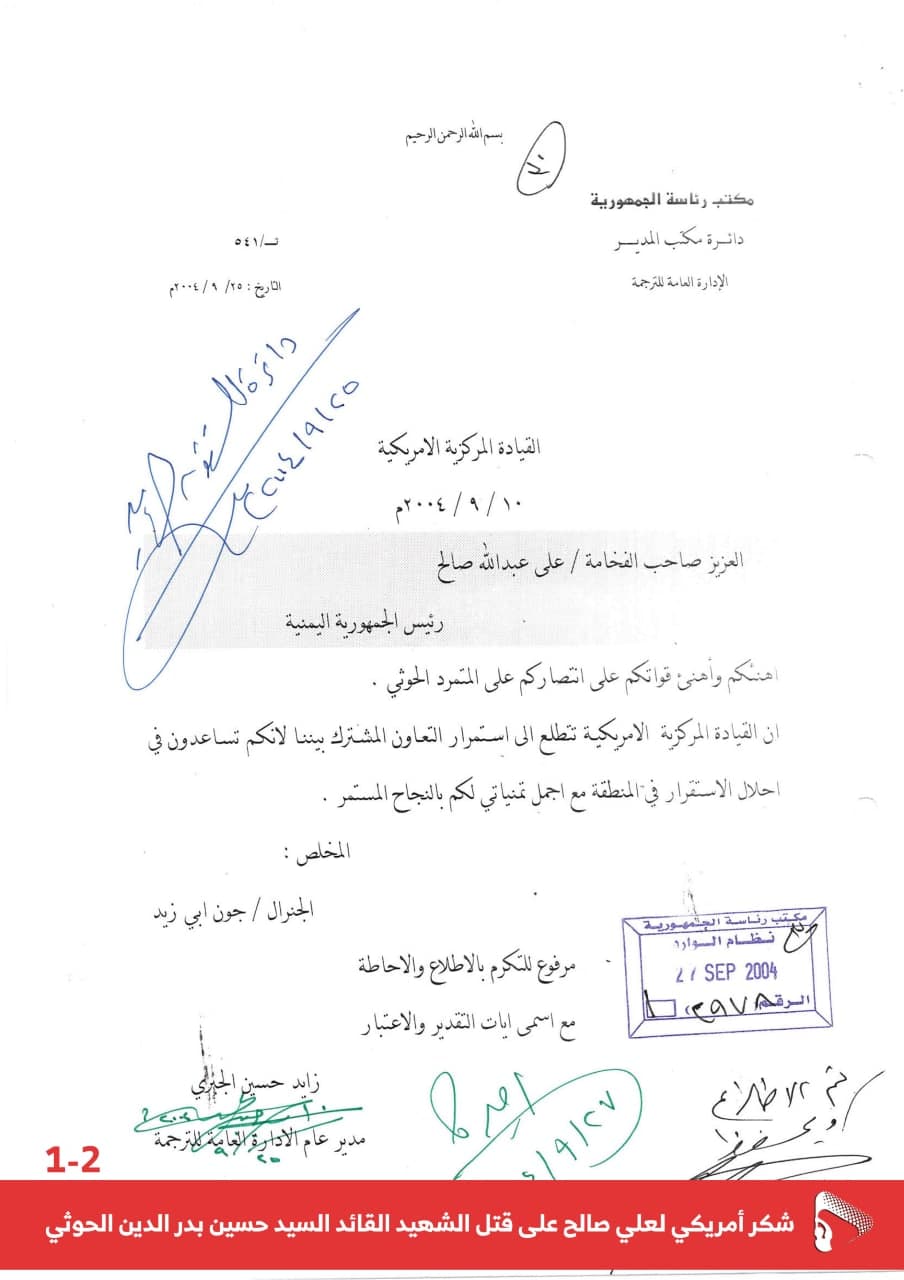 بسم الله الرحمن الرحيم
مكتب رئاسة الجمهورية
دائـرة مكتب المديـر
تـ/٥٤١
الإدارة العامة للترجمة
التاريخ : ٢٥/ ٩ / ٢٠٠٤م
٢٠٠٤/٩/٢٥
القيادة المركزية الامريكية
١٠ / ٩ / ٢٠٠٤م
العزيز صاحب الفخامة / على عبدالله صالح
رئيس الجمهورية اليمنية
اهنئكم وأهنئ قواتكم على انتصاركم على المتمرد الحوثي .
ان القيادة المركزية الامريكية تتطلع الى استمرار التعاون المشترك بيننا لانكم تساعدون في
احلال الاستقرار في المنطقة مع اجمل تمنياتي لكم بالنجاح المستمر .
المخلص :
الجنرال / جون ابي زيد
مكتب رئاسة الجمهورية
نظام الوارد
27 SEP 2004
الرقم
مرفوع للتكرم بالاطلاع والاحاطة
مع اسمى ايات التقدير والاعتبار
زايد حسين الجبري
مدير عام الادارة العامة للترجمة
تم الاطلاع
ويحفظ
1-2
شكر أمريكي لعلي صالح على قتل الشهيد القائد السيد حسين بدر الدين الحوثي